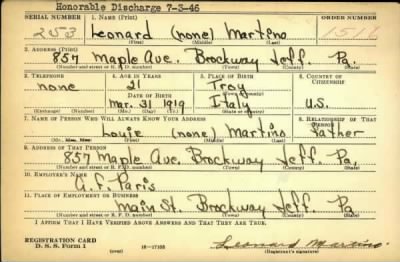 Honorable Discharge 7-3-46
SERIAL NUMBER 1. NAME (Print) ORDER NUMBER
253 Leonard (none) Martino 1516
(First) (Middle) (Last)
2. ADDRESS (Print)
857 Maple Ave. Brockway Jeff. Pa.
(Number and street or R. F. D. number) (Town) (County) (State)
3. TELEPHONE 4. AGE IN YEARS 5. PLACE OF BIRTH 6. COUNTRY OF CITIZENSHIP
none 21 Troy
DATE OF BIRTH
Mar. 31 1919 Italy U.S.
(Exchange) (Number) (Mo.) (Day) (Yr.) (State or country)
7. NAME OF PERSON WHO WILL ALWAYS KNOW YOUR ADDRESS 8. RELATIONSHIP OF THAT PERSON
Louie (none) Martino father
(Mr., Mrs., Miss) (First) (Middle) (Last)
9. ADDRESS OF THAT PERSON
857 Maple Ave. Brockway Jeff. Pa.
(Number and street or R. F. D. number) (Town) (County) (State)
10. EMPLOYER'S NAME
A. F. Paris
11. PLACE OF EMPLOYMENT OR BUSINESS
Main St. Brockway Jeff. Pa
(Number and street or R. F. D. number) (Town) (County) (State)
I AFFIRM THAT I HAVE VERIFIED ABOVE ANSWERS AND THAT THEY ARE TRUE.
REGISTRATION CARD
D. S. S. Form 1 (over) 16-17105 Leonard Martino
(Registrant's signature)